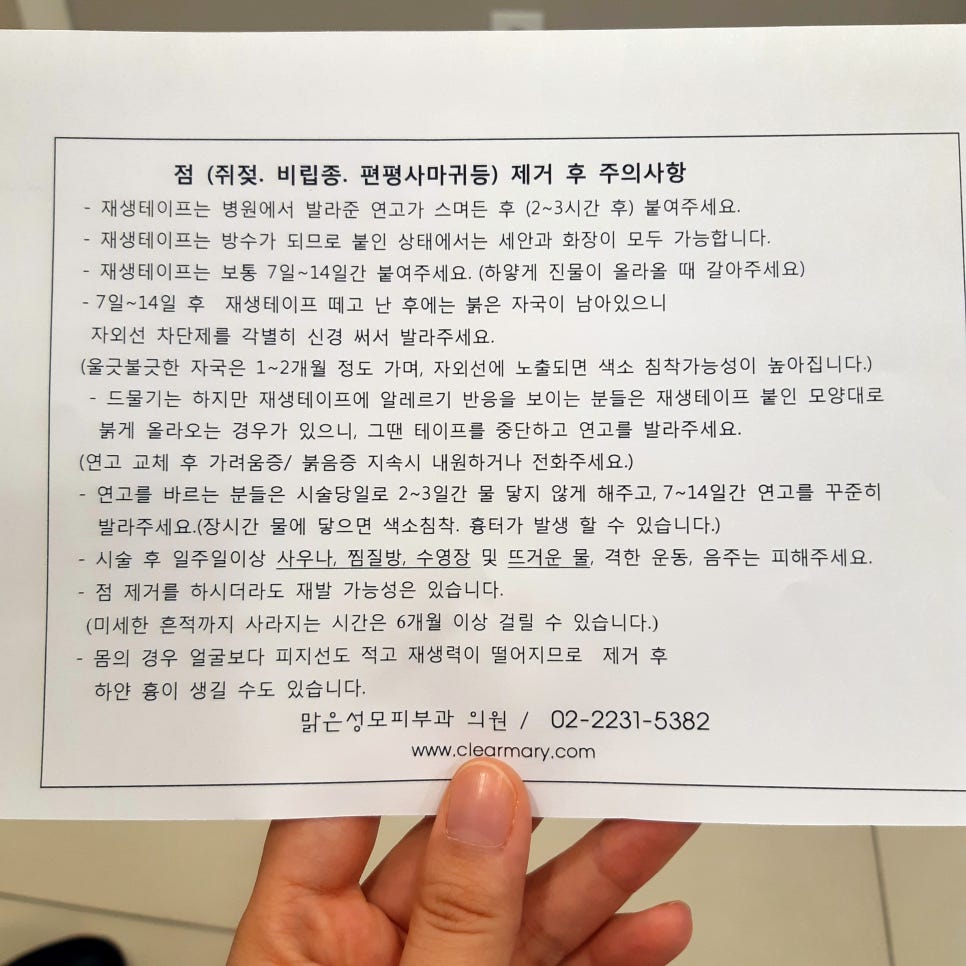 점 (쥐젖. 비립종. 편평사마귀등) 제거 후 주의사항
- 재생테이프는 병원에서 발라준 연고가 스며든 후 (2~3시간 후) 붙여주세요.
- 재생테이프는 방수가 되므로 붙인 상태에서는 세안과 화장이 모두 가능합니다.
- 재생테이프는 보통 7일~14일간 붙여주세요. (하얗게 진물이 올라올 때 갈아주세요)
- 7일~14일 후 재생테이프 떼고 난 후에는 붉은 자국이 남아있으니
자외선 차단제를 각별히 신경 써서 발라주세요.
(울긋불긋한 자국은 1~2개월 정도 가며, 자외선에 노출되면 색소 침착가능성이 높아집니다.)
- 드물기는 하지만 재생테이프에 알레르기 반응을 보이는 분들은 재생테이프 붙인 모양대로
붉게 올라오는 경우가 있으니, 그땐 테이프를 중단하고 연고를 발라주세요.
(연고 교체 후 가려움증/ 붉음증 지속시 내원하거나 전화주세요.)
- 연고를 바르는 분들은 시술당일로 2~3일간 물 닿지 않게 해주고, 7~14일간 연고를 꾸준히
발라주세요.(장시간 물에 닿으면 색소침착. 흉터가 발생 할 수 있습니다.)
- 시술 후 일주일이상 사우나, 찜질방, 수영장 및 뜨거운 물, 격한 운동, 음주는 피해주세요.
- 점 제거를 하시더라도 재발 가능성은 있습니다.
(미세한 흔적까지 사라지는 시간은 6개월 이상 걸릴 수 있습니다.)
- 몸의 경우 얼굴보다 피지선도 적고 재생력이 떨어지므로 제거 후
하얀 흉이 생길 수도 있습니다.
맑은성모피부과 의원 / 02-2231-5382
www.clearmary.com